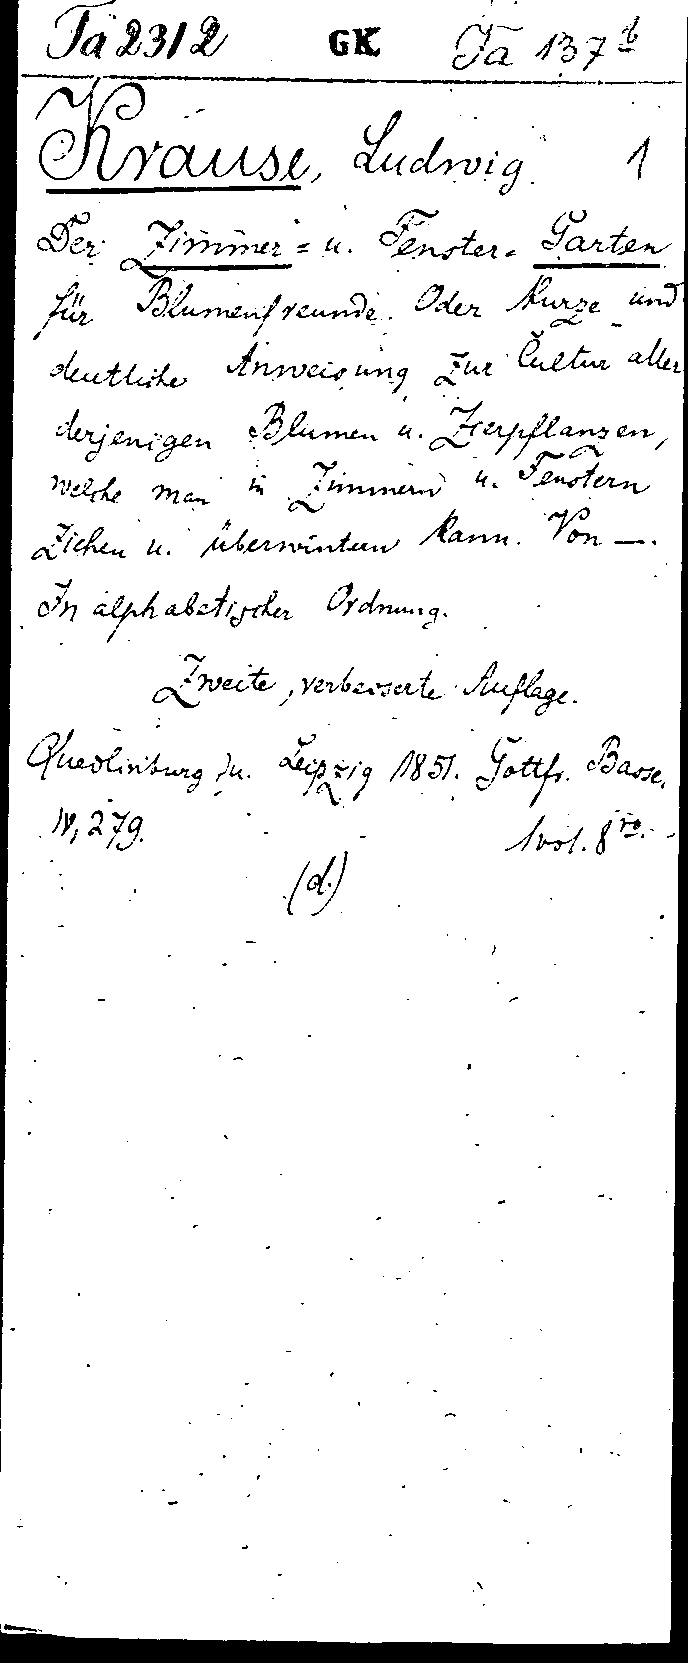 Ta 2312 GK Ta 137 b
Krause, Ludwig. 1
Der Zimmer- u. Fenster-Garten
für Blumenfreunde. Oder kurze und
deutliche Anweisung zur Cultur aller
derjenigen Blumen u. Zierpflanzen,
welche man in Zimmern u. Fenstern
ziehen u. überwintern kann. Von —.
In alphabetischer Ordnung.
Zweite, verbesserte Auflage.
Quedlinburg u. Leipzig 1851. Gottfr. Basse.
IV, 279. 1 vol. 8vo.
(d.)